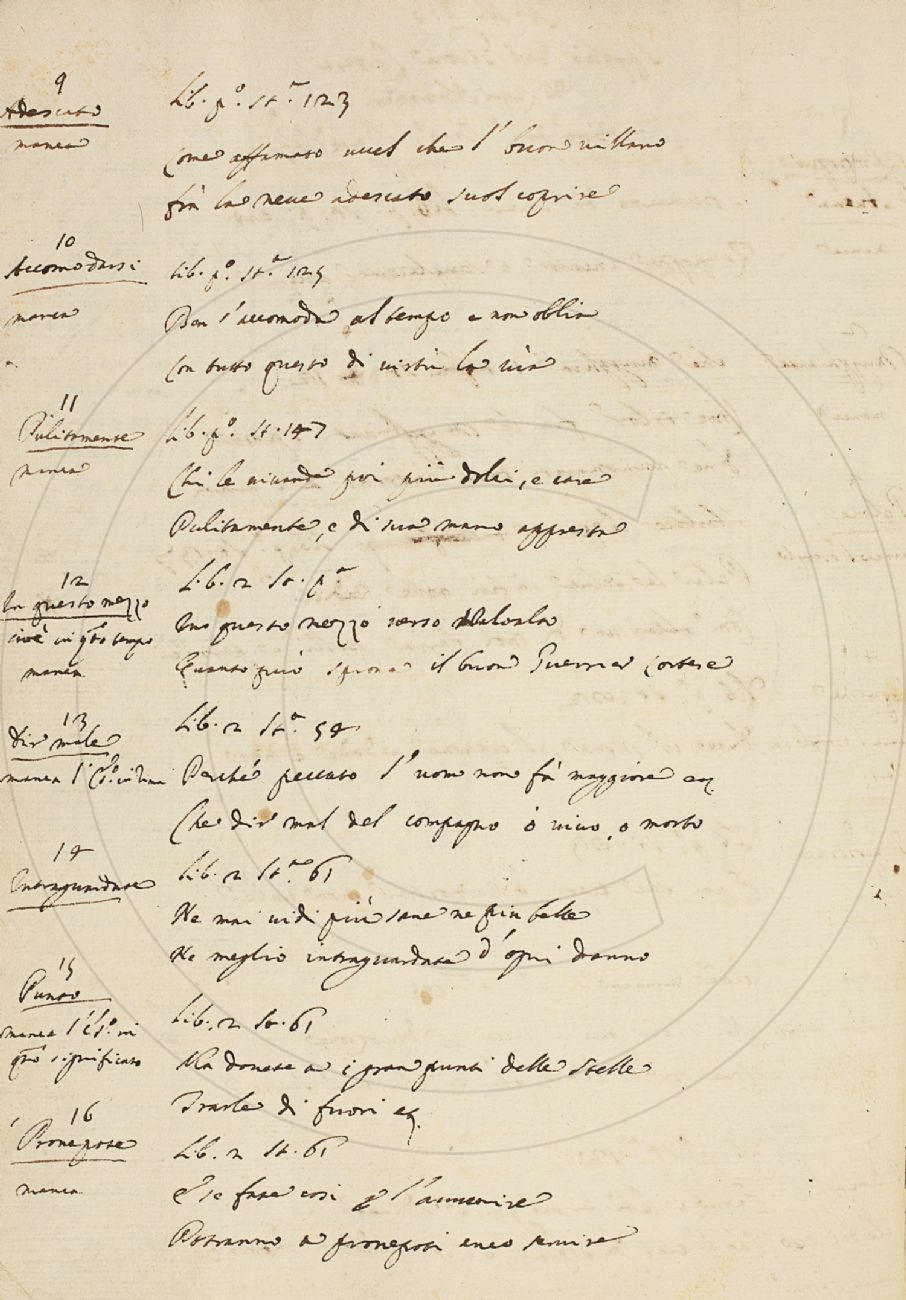 9
Adescato
manca
Lib. p.º St.ª 123
Come affamato uccel che l' buon villano
frà la neve adescato suol coprire
10
Accomodarsi
manca
Lib. p.º St.ª 125
Ben s'accomoda al tempo e non oblia
Con tutto questo di virtù la via
11
Pulitamente
manca
Lib. p.º St. 147
Chi le vivande poi più dolci, e care
Pulitamente, e di sua mano appresta
12
In questo mezzo
cioè in q.to tempo
manca
Lib. 2 St. p.ª
In questo mezzo verso
Quanto può sprona il buon Guerrier cortese
13
Dir male
manca l'es.º in Rima
Lib. 2 St.ª 54
Perché peccato l'uom non fà maggiore ec.
Che dir mal del compagno ò vivo, o morto
14
Intraguardate
Lib. 2 St.ª 61
Ne mai vidi più sane ne piu belle
Ne meglio intraguardate d'ogni danno
15
Punto
manca l'es.º in
q.to significato
Lib. 2 St. 61
Ma donete a i gran punti delle Stelle
Trarle di fuori ec.
16
Pronepote
manca
Lib. 2 St. 61
E se fate così p l'avvenire
Potranno a pronepoti anco servire